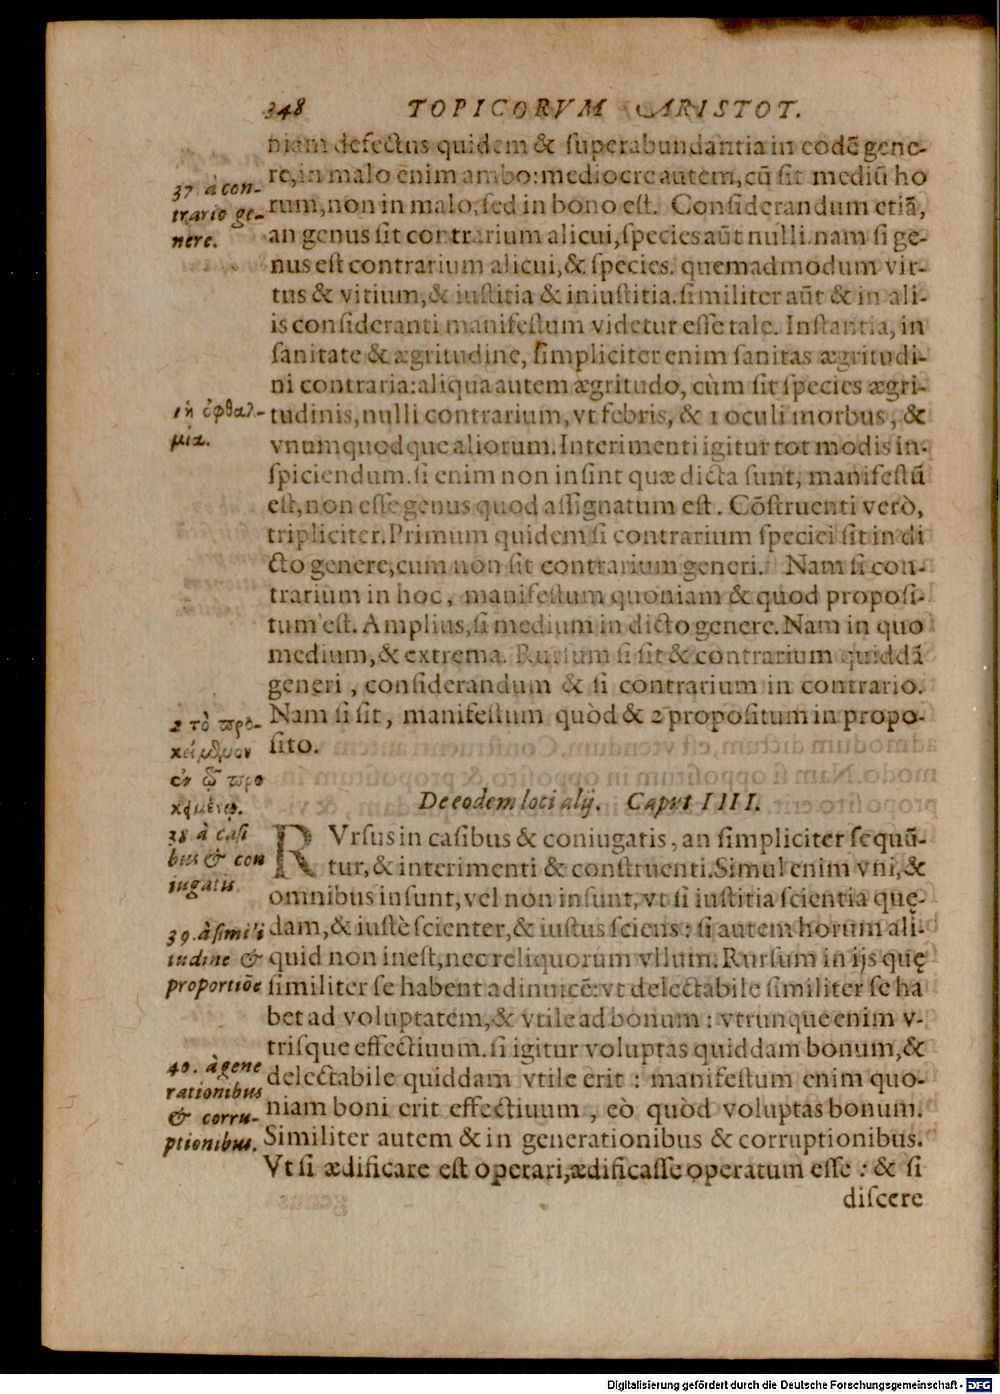 348 TOPICORVM ARISTOT.
niam defectus quidem & ſuperabundantia in eodē gene-
re, in malo enim ambo: mediocre autem, cū ſit mediū ho
rum, non in malo, ſed in bono eſt. Conſiderandum etiā,
an genus ſit contrarium alicui, ſpecies aūt nulli. nam ſi ge-
nus eſt contrarium alicui, & ſpecies. quemadmodum vir-
tus & vitium, & iuſtitia & iniuſtitia. ſimiliter aūt & in ali-
is conſideranti manifeſtum videtur eſſe tale. Inſtantia, in
ſanitate & ægritudine, ſimpliciter enim ſanitas ægritudi-
ni contraria: aliqua autem ægritudo, cùm ſit ſpecies ægri-
tudinis, nulli contrarium, vt febris, & 1 oculi morbus, &
vnumquodque aliorum. Interimenti igitur tot modis in-
ſpiciendum. ſi enim non inſint quæ dicta ſunt, manifeſtū
eſt, non eſſe genus quod aſſignatum eſt. Cōſtruenti verò,
tripliciter. Primum quidem ſi contrarium ſpeciei ſit in di
cto genere, cum non ſit contrarium generi. Nam ſi con-
trarium in hoc, manifeſtum quoniam & quod propoſi-
tum eſt. Amplius, ſi medium in dicto genere. Nam in quo
medium, & extrema. Rurſum ſi ſit & contrarium quiddā
generi, conſiderandum & ſi contrarium in contrario.
Nam ſi ſit, manifeſtum quòd & 2 propoſitum in propo-
ſito.
De eodem loci alij. Capvt IIII.
RVrſus in caſibus & coniugatis, an ſimpliciter ſequū-
tur, & interimenti & conſtruenti. Simul enim vni, &
omnibus inſunt, vel non inſunt, vt ſi iuſtitia ſcientia quę-
dam, & iuſtè ſcienter, & iuſtus ſciens: ſi autem horum ali-
quid non ineſt, nec reliquorum vllum. Rurſum in ijs quę
ſimiliter ſe habent adinuicē: vt delectabile ſimiliter ſe ha
bet ad voluptatem, & vtile ad bonum: vtrunque enim v-
triſque effectiuum. ſi igitur voluptas quiddam bonum, &
delectabile quiddam vtile erit: manifeſtum enim quo-
niam boni erit effectiuum, eò quòd voluptas bonum.
Similiter autem & in generationibus & corruptionibus.
Vt ſi ædificare eſt operari, ædificaſſe operatum eſſe: & ſi
diſcere
37 à con-
trario ge-
nere.
1 ἡ ὀφθαλ-
μία.
2 τὸ προ-
κείμενον
ἐν τῷ προ
κειμένῳ.
38 à caſi
bus & con
iugatis
39. à ſimili
tudine &
proportiōe
40. à gene
rationibus
& corru-
ptionibus.
Digitalisierung gefördert durch die Deutsche Forschungsgemeinschaft - DFG